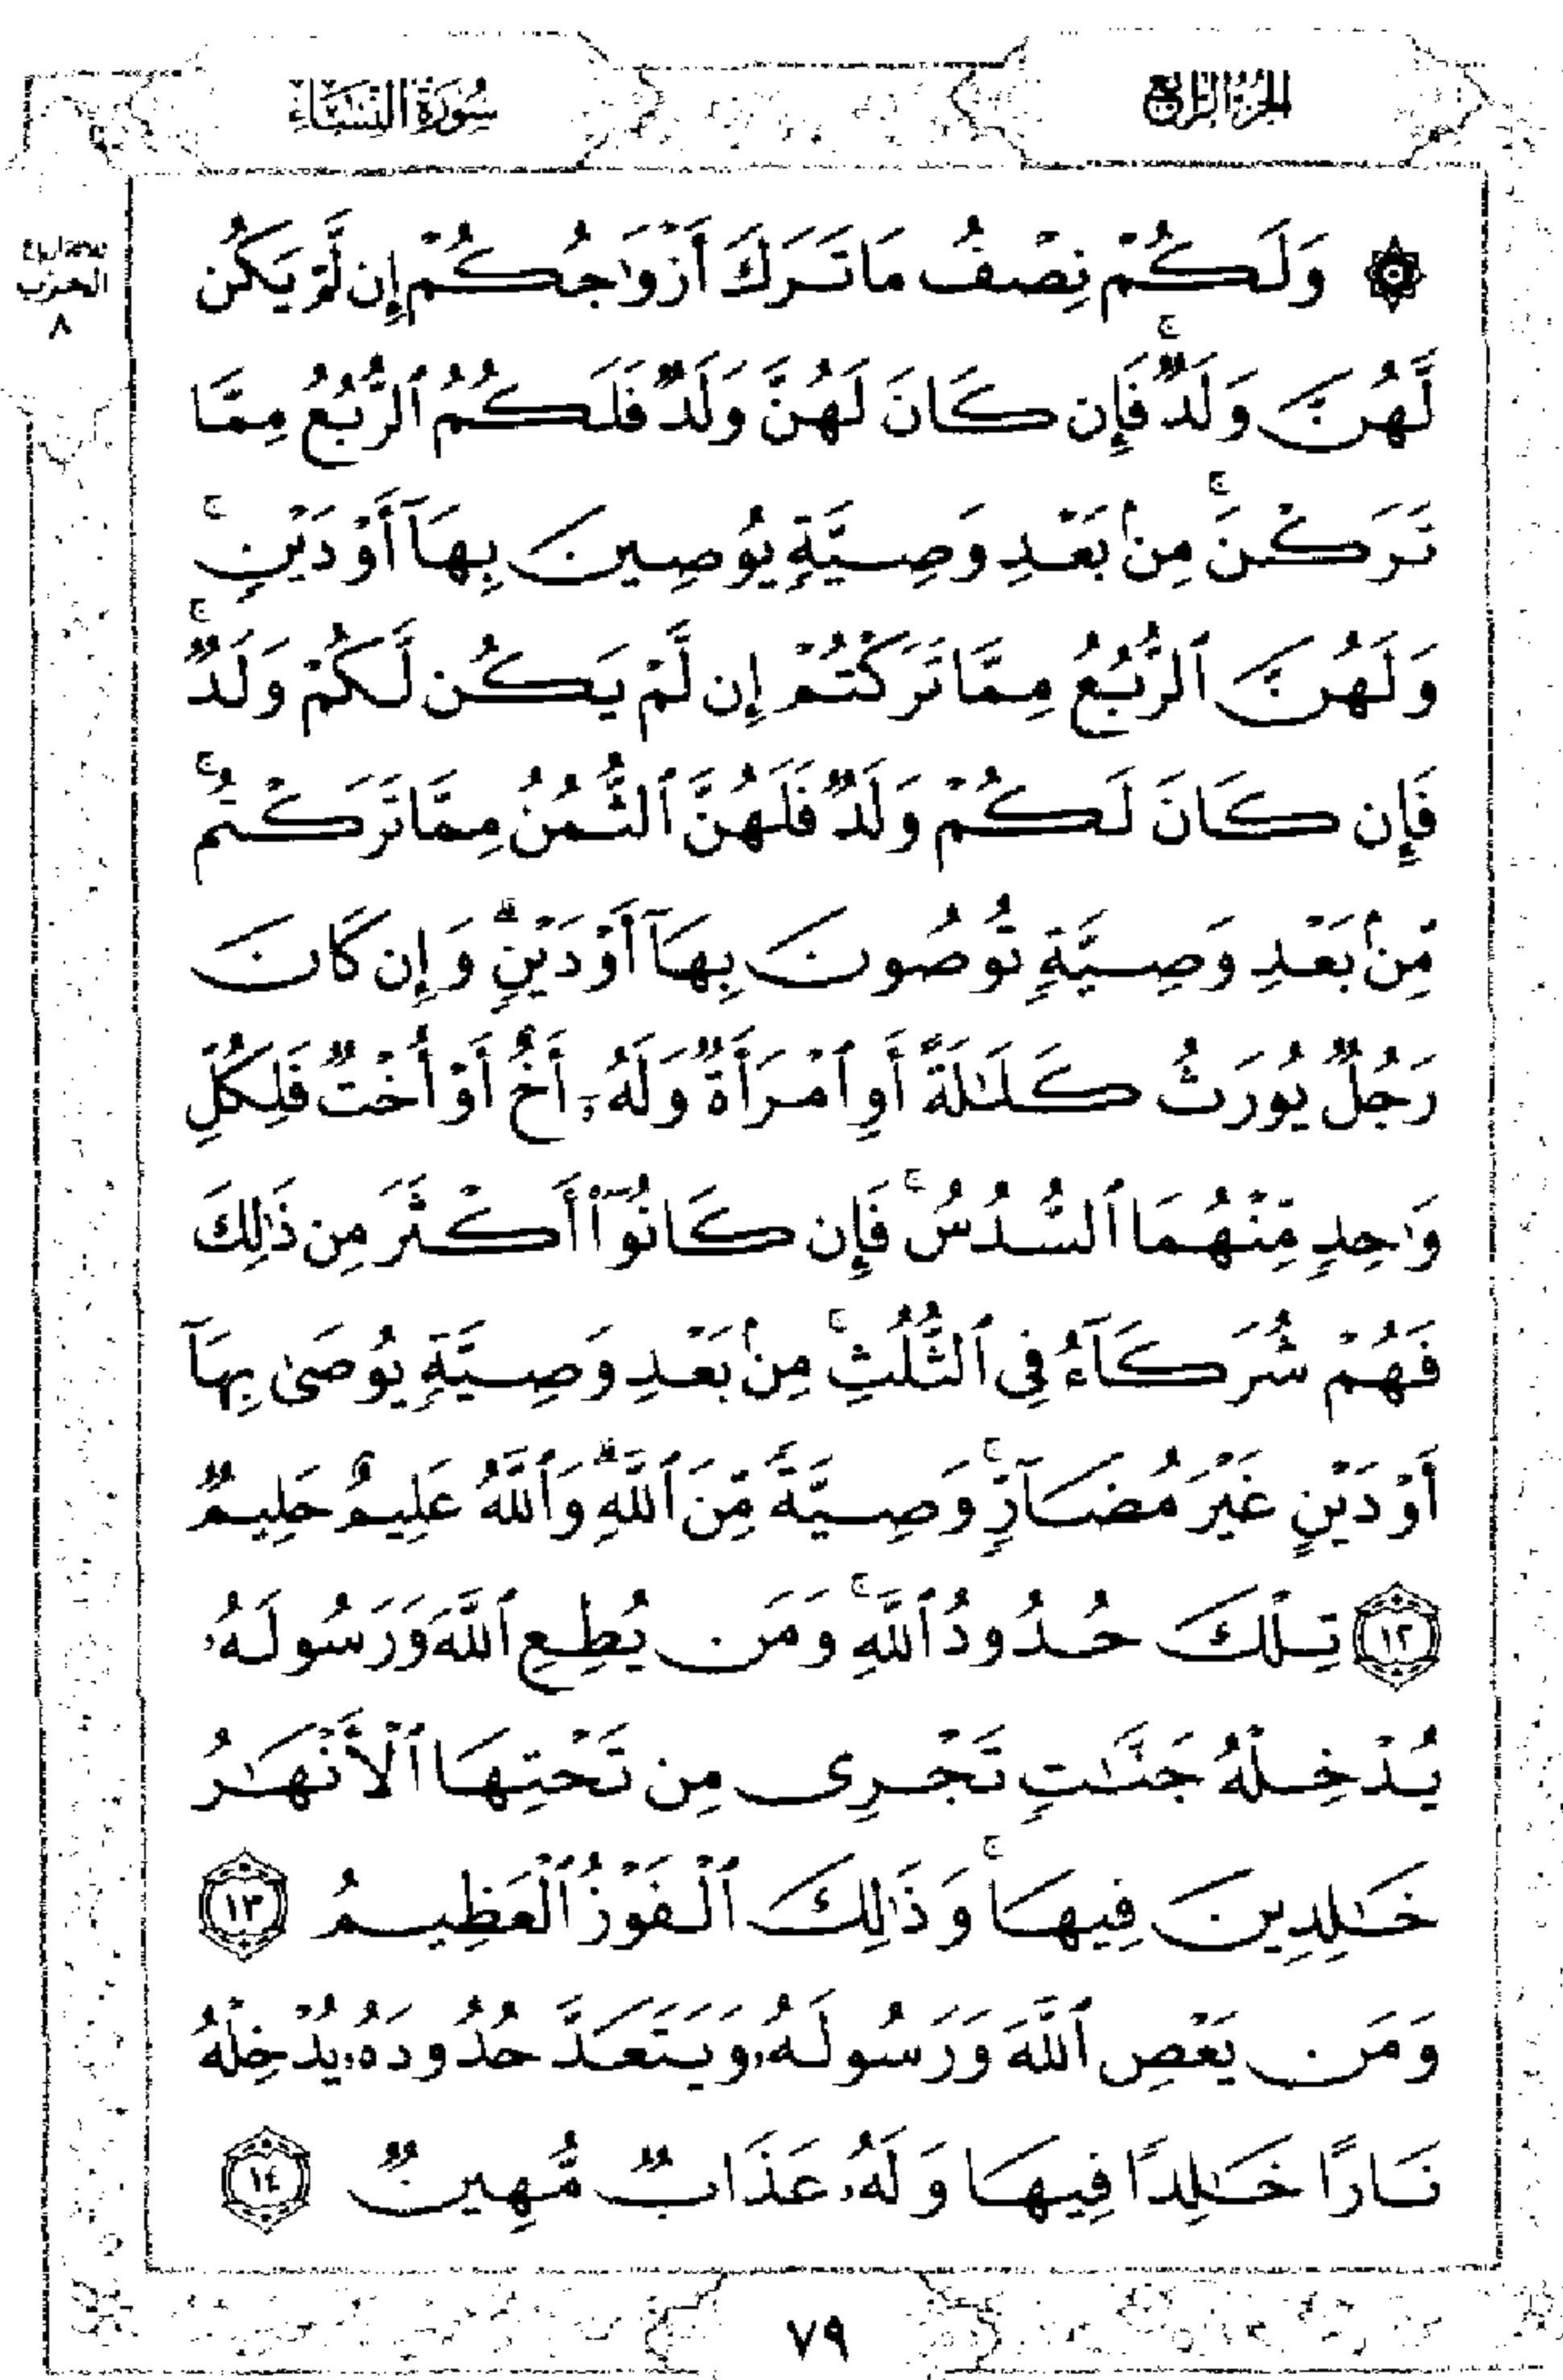 الجزء الرابع
سورة النساء
الحزب
٨
۞ وَلَكُمْ نِصْفُ مَا تَرَكَ أَزْوَٰجُكُمْ إِن لَّمْ يَكُن
لَّهُنَّ وَلَدٌ ۚ فَإِن كَانَ لَهُنَّ وَلَدٌ فَلَكُمُ ٱلرُّبُعُ مِمَّا
تَرَكْنَ ۚ مِنۢ بَعْدِ وَصِيَّةٍ يُوصِينَ بِهَآ أَوْ دَيْنٍ ۚ
وَلَهُنَّ ٱلرُّبُعُ مِمَّا تَرَكْتُمْ إِن لَّمْ يَكُن لَّكُمْ وَلَدٌ ۚ
فَإِن كَانَ لَكُمْ وَلَدٌ فَلَهُنَّ ٱلثُّمُنُ مِمَّا تَرَكْتُم ۚ
مِّنۢ بَعْدِ وَصِيَّةٍ تُوصُونَ بِهَآ أَوْ دَيْنٍ ۗ وَإِن كَانَ
رَجُلٌ يُورَثُ كَلَـٰلَةً أَوِ ٱمْرَأَةٌ وَلَهُۥٓ أَخٌ أَوْ أُخْتٌ فَلِكُلِّ
وَٰحِدٍ مِّنْهُمَا ٱلسُّدُسُ ۚ فَإِن كَانُوٓا۟ أَكْثَرَ مِن ذَٰلِكَ
فَهُمْ شُرَكَآءُ فِى ٱلثُّلُثِ ۚ مِنۢ بَعْدِ وَصِيَّةٍ يُوصَىٰ بِهَآ
أَوْ دَيْنٍ غَيْرَ مُضَآرٍّ ۚ وَصِيَّةً مِّنَ ٱللَّهِ ۗ وَٱللَّهُ عَلِيمٌ حَلِيمٌ
١٢ تِلْكَ حُدُودُ ٱللَّهِ ۚ وَمَن يُطِعِ ٱللَّهَ وَرَسُولَهُۥ
يُدْخِلْهُ جَنَّـٰتٍ تَجْرِى مِن تَحْتِهَا ٱلْأَنْهَـٰرُ
خَـٰلِدِينَ فِيهَا ۚ وَذَٰلِكَ ٱلْفَوْزُ ٱلْعَظِيمُ ١٣
وَمَن يَعْصِ ٱللَّهَ وَرَسُولَهُۥ وَيَتَعَدَّ حُدُودَهُۥ يُدْخِلْهُ
نَارًا خَـٰلِدًا فِيهَا وَلَهُۥ عَذَابٌ مُّهِينٌ ١٤
٧٩